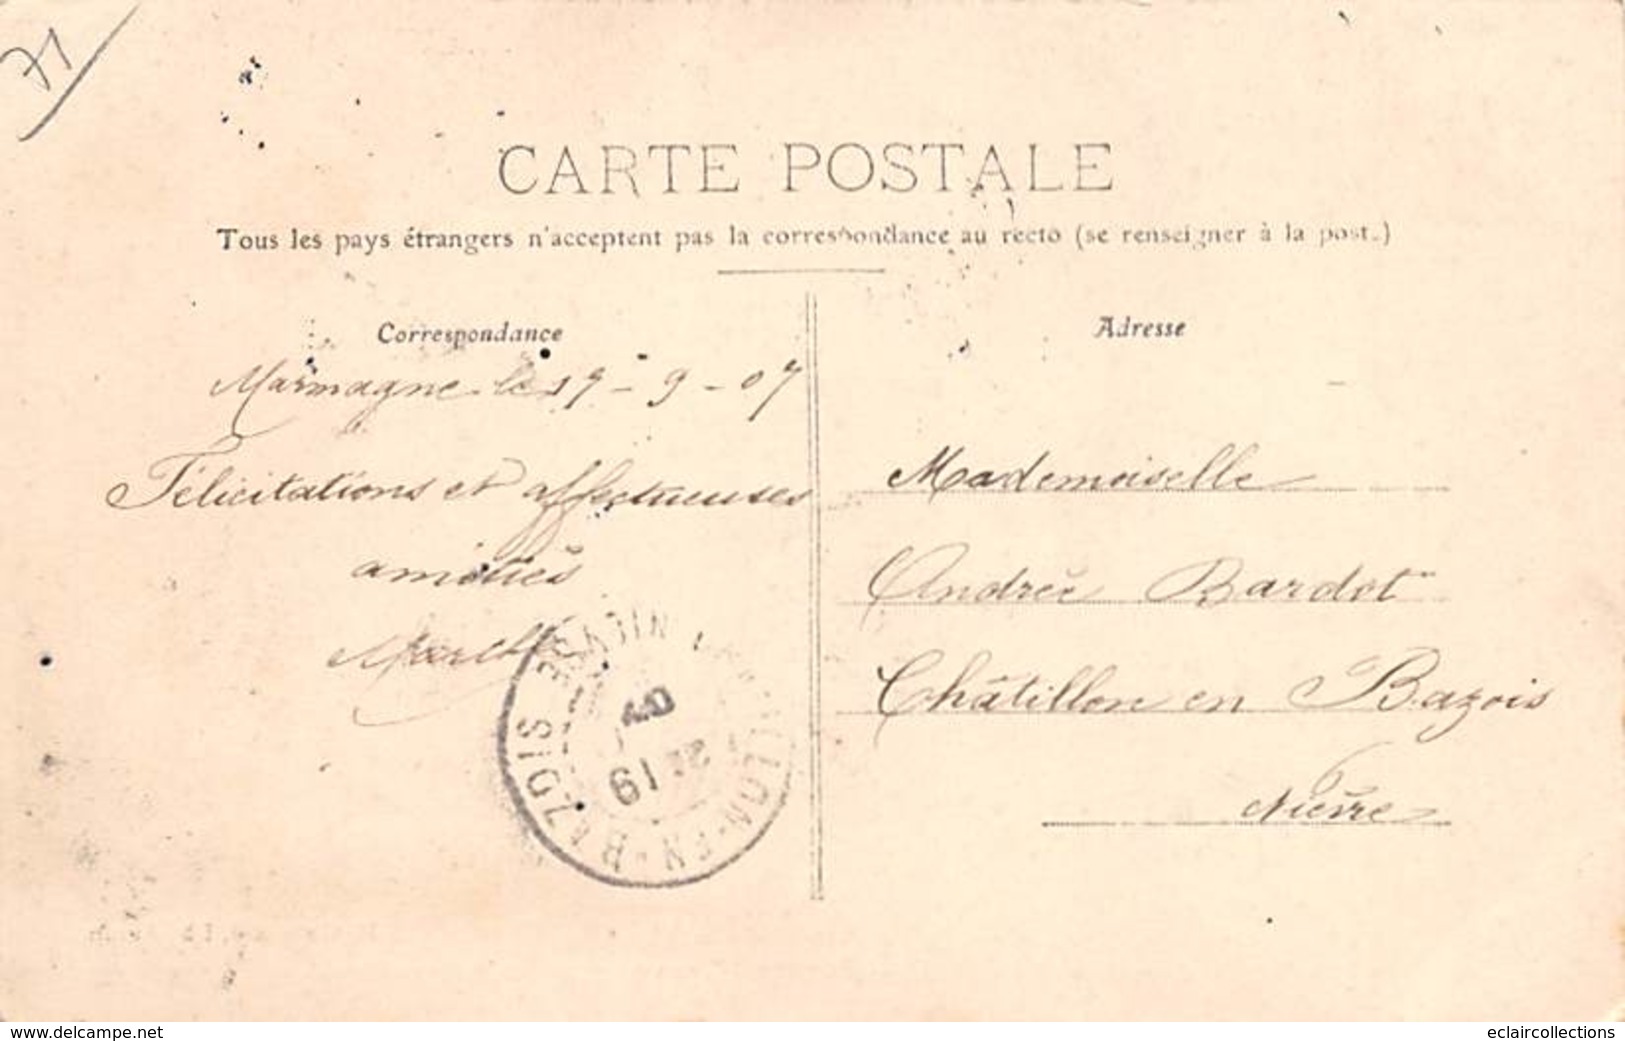 71
CARTE POSTALE
Tous les pays étrangers n'acceptent pas la correspondance au recto (se renseigner à la poste.)
Correspondance
Marmagne le 17-9-07
Félicitations et affectueuses
amitiés
Adresse
Mademoiselle
Andrée Bardot
Châtillon en Bazois
Nièvre
CHATILLON-EN-BAZOIS
19
www.delcampe.net
eclaircollections